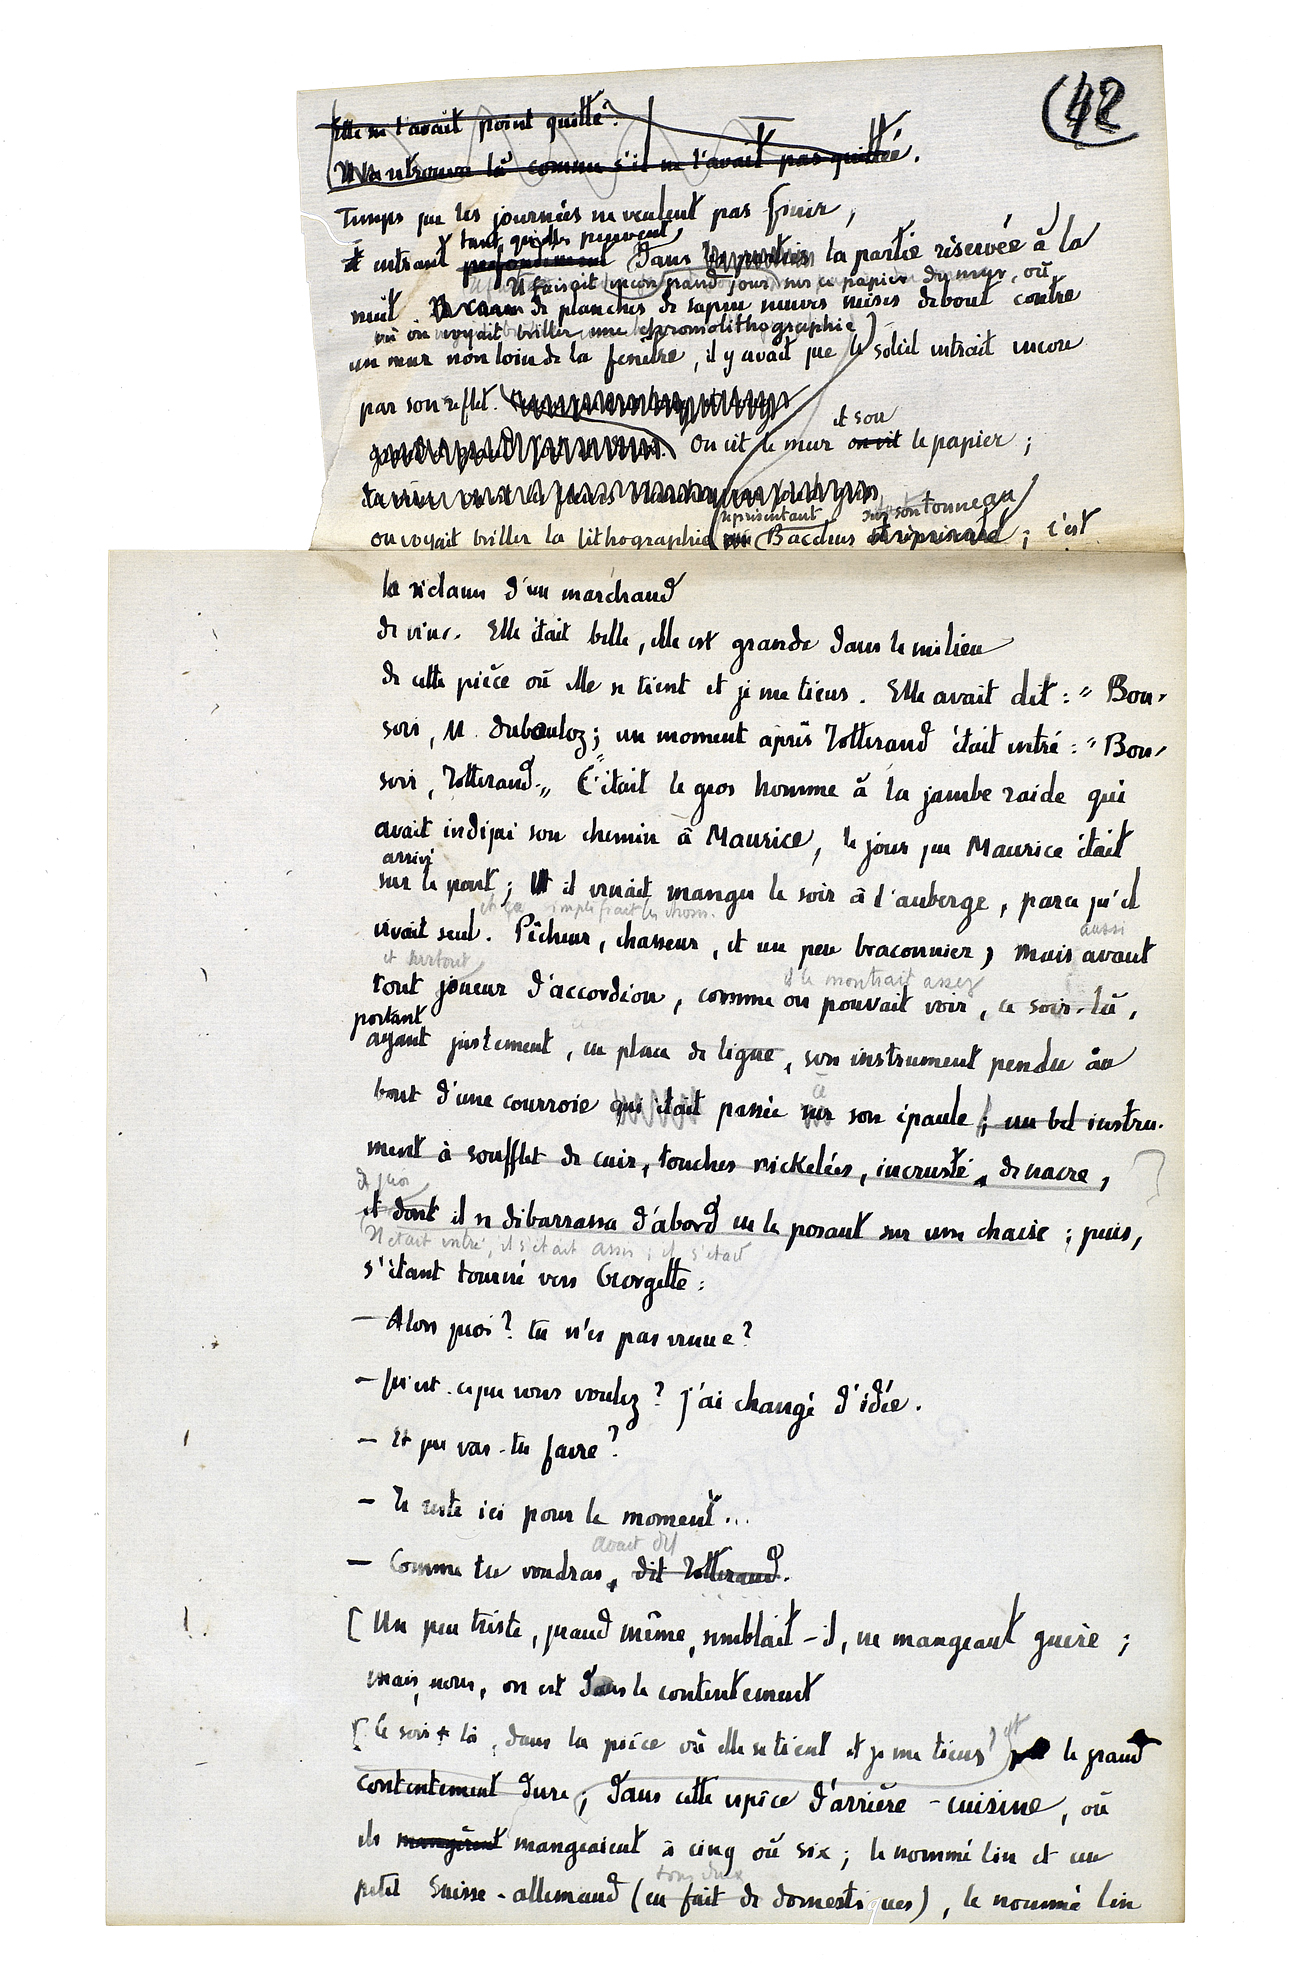 42
Elle ne l'avait point quitté.
comme s'il ne l'avait pas quittée.
Temps que les journées ne veulent pas finir,
tant qu'elles peuvent,
et entrant profondément dans la partie réservée à la
Il faisait encore grand jour sur ce papier du mur, où
nuit. de planches de sapin neuves mises debout contre
où on voyait briller une chromolithographie)
un mur non loin de la fenêtre, il y avait que le soleil entrait encore
par son reflet.
et son
On vit le mur on vit le papier ;
représentant sur son tonneau
on voyait briller la lithographie Bacchus ; c'est
la réclame d'un marchand
de vins. Elle était belle, elle est grande dans le milieu
de cette pièce où elle se tient et je me tiens. Elle avait dit : " Bon-
soir, M. Dubouloz ; un moment après Rotterand était entré : " Bon-
soir, Rotterand. " C'était le gros homme à la jambe raide qui
avait indiqué son chemin à Maurice, le jour que Maurice était
arrivé
sur le pont ; il venait manger le soir à l'auberge, parce qu'il
et ça simplifiait les choses.
vivait seul. Pêcheur, chasseur, et un peu braconnier, mais avant
aussi
et surtout
tout joueur d'accordéon, comme on pouvait voir, ce soir-là,
il le montrait assez
portant
ayant justement, en place de ligne, son instrument pendu au
bout d'une courroie qui était passée sur son épaule ; un bel instru-
ment à soufflet de cuir, touches nickelées, incrusté de nacre,
de quoi
et dont il se débarrassa d'abord en le posant sur une chaise ; puis,
Il était entré, il s'était assis ; il s'était
s'étant tourné vers Georgette :
— Alors quoi ? tu n'es pas venue ?
— Qu'est-ce que vous voulez ? j'ai changé d'idée.
— Et que vas-tu faire ?
— Je reste ici pour le moment...
avait dit
— Comme tu voudras, dit Rotterand.
[ Un peu triste, quand même, semblait-il, ne mangeant guère ;
mais, nous, on est dans le contentement
[ Ce soir-là, dans la pièce où elle se tient et je me tiens, et le grand
contentement dure ; dans cette espèce d'arrière-cuisine, où
ils mangèrent mangeaient à cinq où six ; le nommé Lin et un
tous deux
petit Suisse-allemand (en fait de domestiques), le nommé Lin